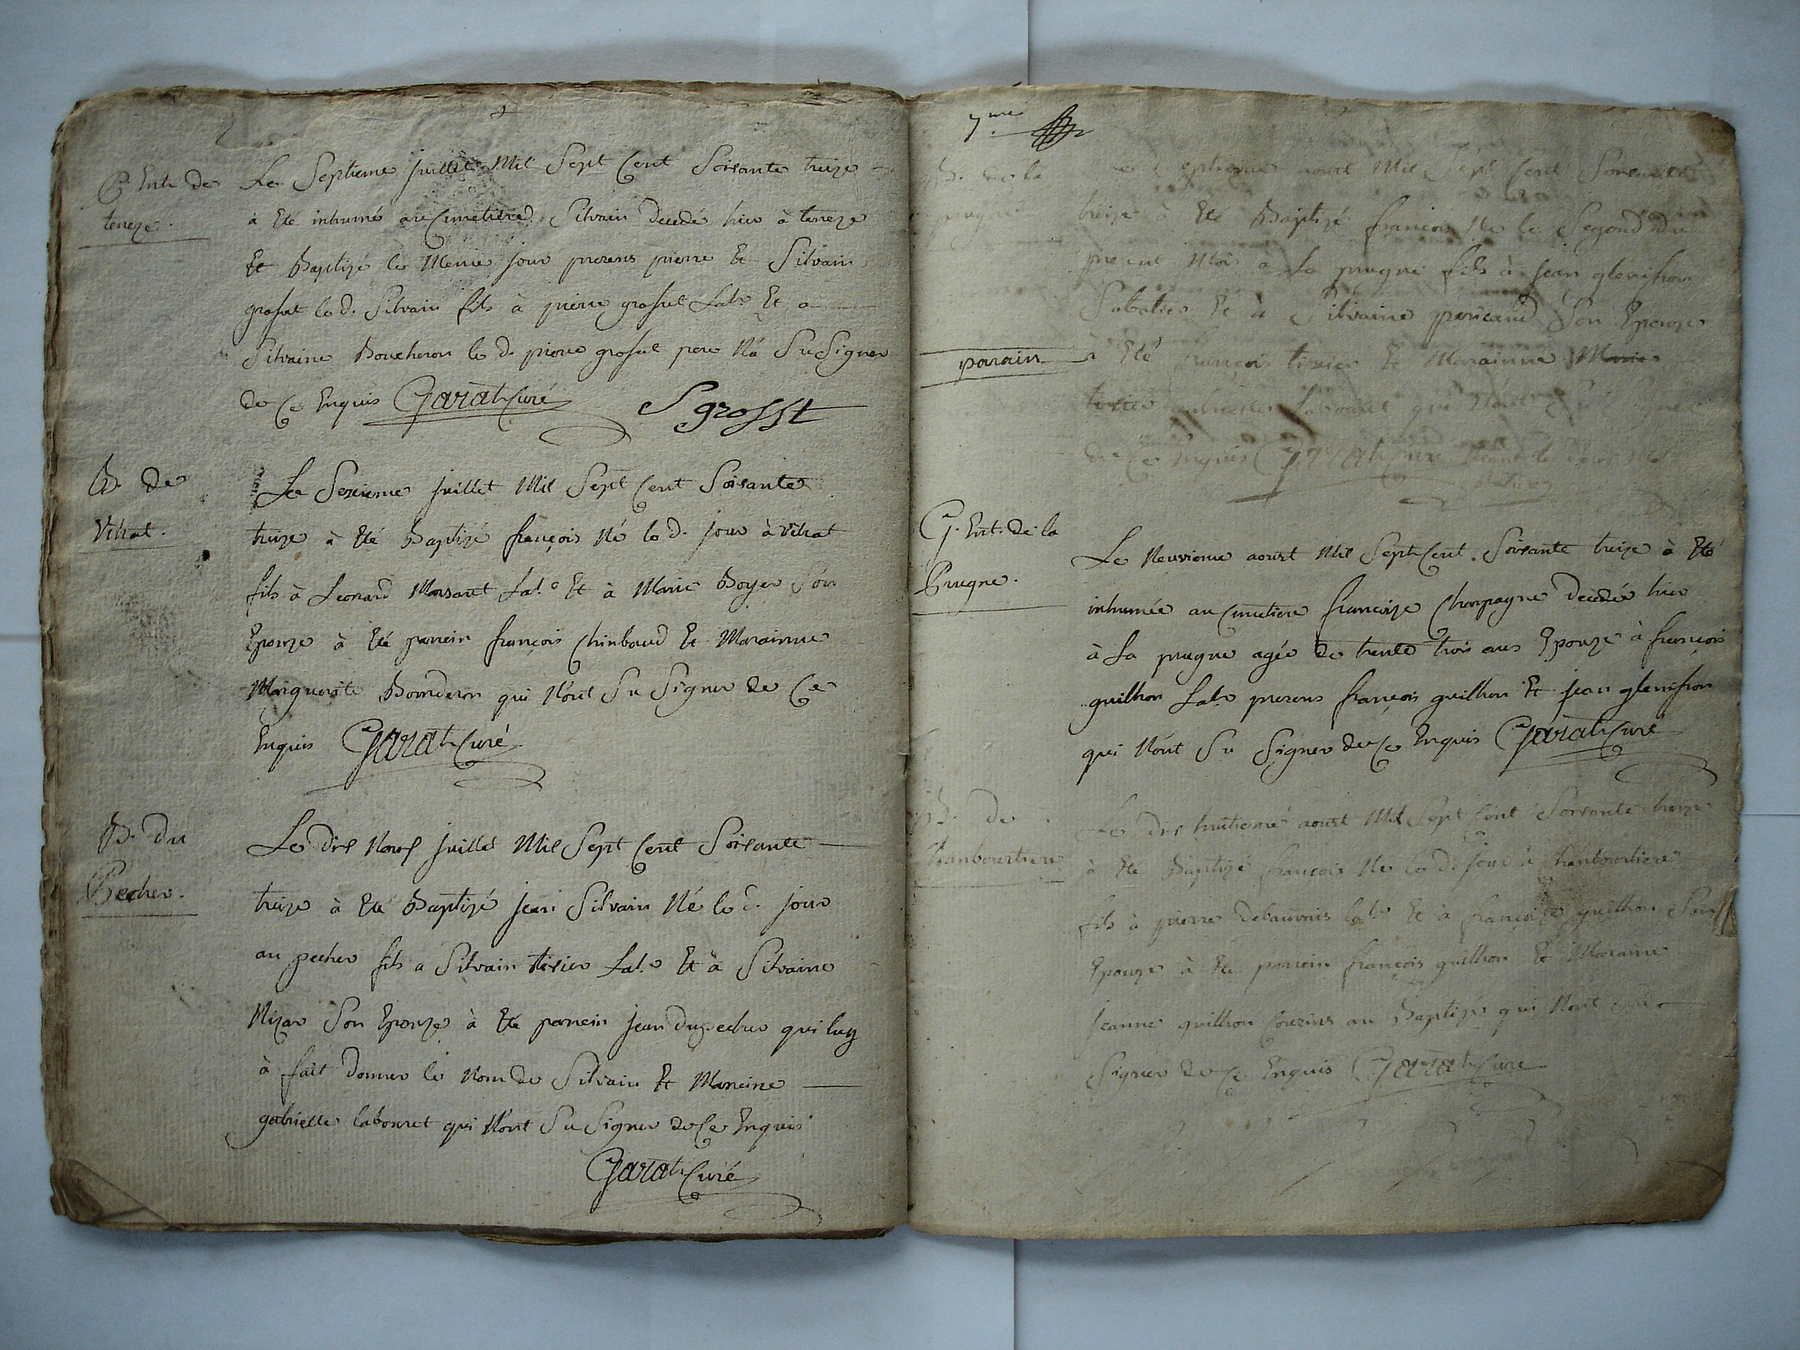 P. Ent. de
teneze.
Le Septieme juillet Mil Sept Cent Soixante treize
à Eté inhumé au Cimetiere Silvain decedé hier à teneze
Et Baptizé le Meme jour presens pierre Et Silvain
grosset led. Silvain fils à pierre grosset Labr. Et a
Silvaine Boucheron le d. pierre grosset pere Na Su Signer
de Ce Enquis Garat Curé Sgrosst
B. de
Vitrat.
Le Sezieme juillet Mil Sept Cent Soixante
treize à Eté Baptizé françois Né le d. jour à Vitrat
fils à Leonard Marsaut Labr. Et à Marie Boyer Son
Epouze à Eté parein françois Chinbaud Et Maraine
Marguerite Bourderon qui N'ont Su Signer de Ce
Enquis Garat Curé
B. du
Pecher.
Le dix Neuf juillet Mil Sept Cent Soixante
treize à Eté Baptizé jean Silvain Né le d. jour
au pecher fils a Silvain texier Labr. Et à Silvaine
Nizar Son Epouze à Eté parein jean dupecher qui luy
à fait donner le Nom de Silvain Et Mareine
gabrielle labouret qui N'ont Su Signer de Ce Enquis
Garat Curé
7me
B. de la
prugne
Le Septieme aoust Mil Sept Cent Soixante
treize à Eté Baptizé françois Né le Segond du
present Mois à La prugne fils à jean glenisson
Sabotier Et à Silvaine Son Epouze
parain à Eté françois texier Et Marainne Marie
texier labouret qui N'ont Su Signer
de Ce Enquis Garat Curé
G. Ent. de la
Prugne.
Le Neuvieme aoust Mil Sept Cent Soixante treize à Eté
inhumée au Cimetiere françoize Champagne decedée hier
à La prugne agée de trente trois ans Epouze à françois
guilhon Labr. presens françois guilhon Et jean glenisson
qui N'ont Su Signer de Ce Enquis Garat Curé
B. de
Chanboursiere
Le dix huitieme aoust Mil Sept Cent Soixante treize
à Eté Baptizé françois Né le d. jour à Chanboursiere
fils à pierre Delauvais labr. Et à françoize guilhon Son
Epouze à Eté parein françois guilhon Et Maraine
jeanne guilhon Cousins au Baptizé qui N'ont Su
Signer de Ce Enquis Garat Curé